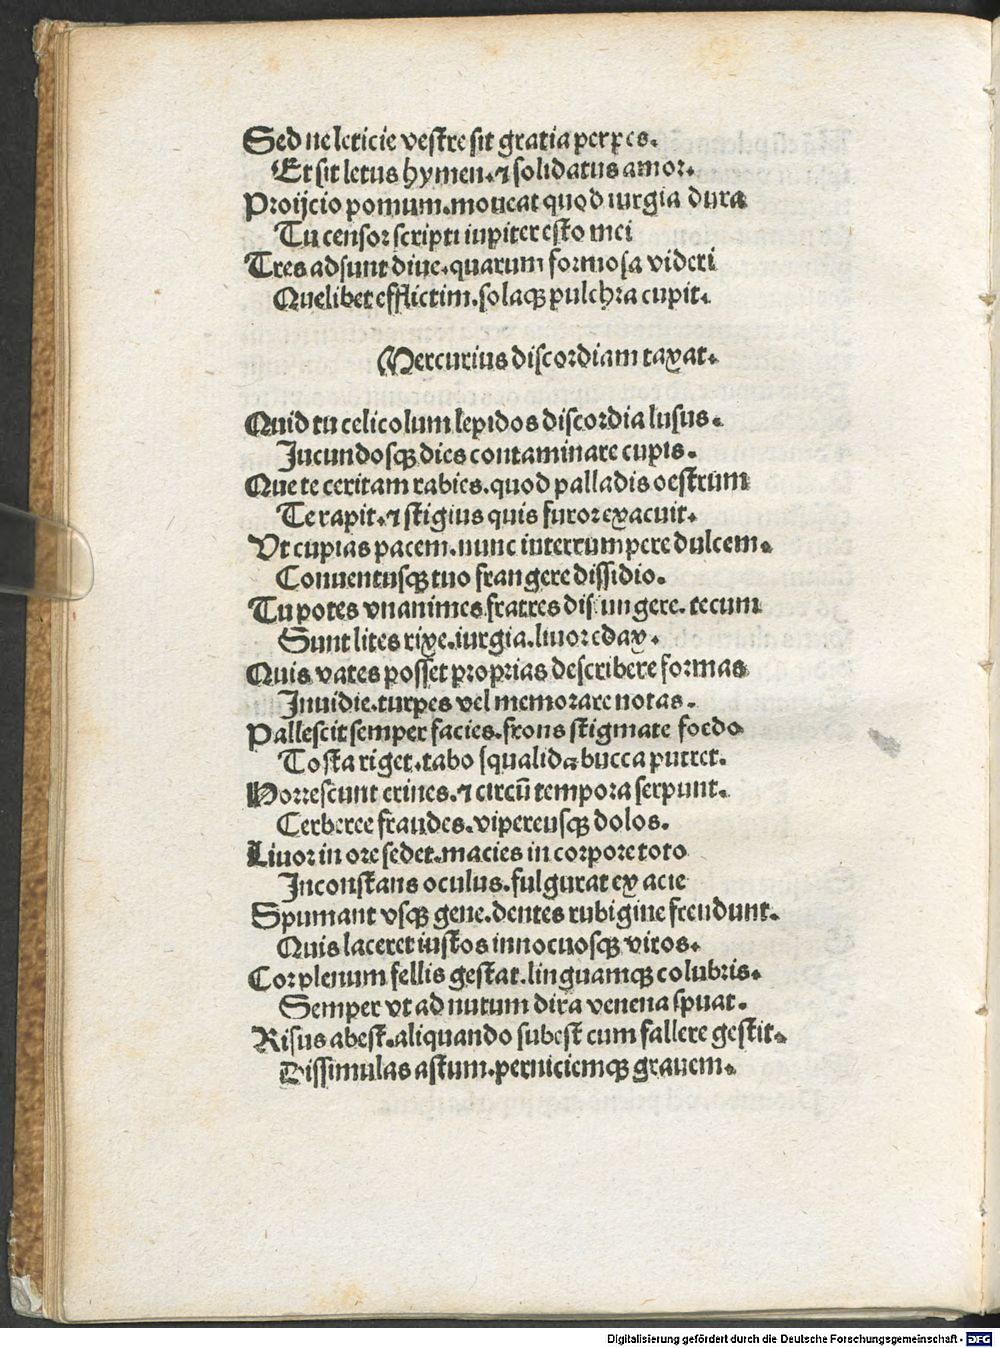 Sed ne leticie vestre sit gratia perpes.
Et sit letus hymen. ⁊ solidatus amor.
Proijcio pomum. moueat quod iurgia dura
Tu censor scripti iupiter esto mei
Tres adsunt diue. quarum formosa videri
Quelibet efflictim. solaqꝫ pulchra cupit.
Mercurius discordiam taxat.
Quid tu celicolum lepidos discordia lusus.
Jucundosqꝫ dies contaminare cupis.
Que te ceritam rabies. quod palladis oestrum
Te rapit. ⁊ stigius quis furor exacuit.
Vt cupias pacem. nunc interrumpere dulcem.
Conuentusqꝫ tuo frangere dissidio.
Tu potes vnanimes fratres disiungere. tecum
Sunt lites rixe. iurgia. liuor edax.
Quis vates posset proprias describere formas
Inuidie. turpes vel memorare notas.
Pallescit semper facies. frons stigmate foedo
Tosta riget. tabo squalida bucca putret.
Horrescunt crines. ⁊ circū tempora serpunt.
Cerberee fraudes. vipereusqꝫ dolos.
Liuor in ore sedet. macies in corpore toto
Inconstans oculus. fulgurat ex acie
Spumant vsqꝫ gene. dentes rubigine frendunt.
Quis laceret iustos innocuosqꝫ viros.
Cor plenum fellis gestat. linguamqꝫ colubris.
Semper vt ad nutum dira venena spuat.
Risus abest. aliquando subest cum fallere gestit.
Dissimulas astum. perniciemqꝫ grauem.
Digitalisierung gefördert durch die Deutsche Forschungsgemeinschaft - DFG